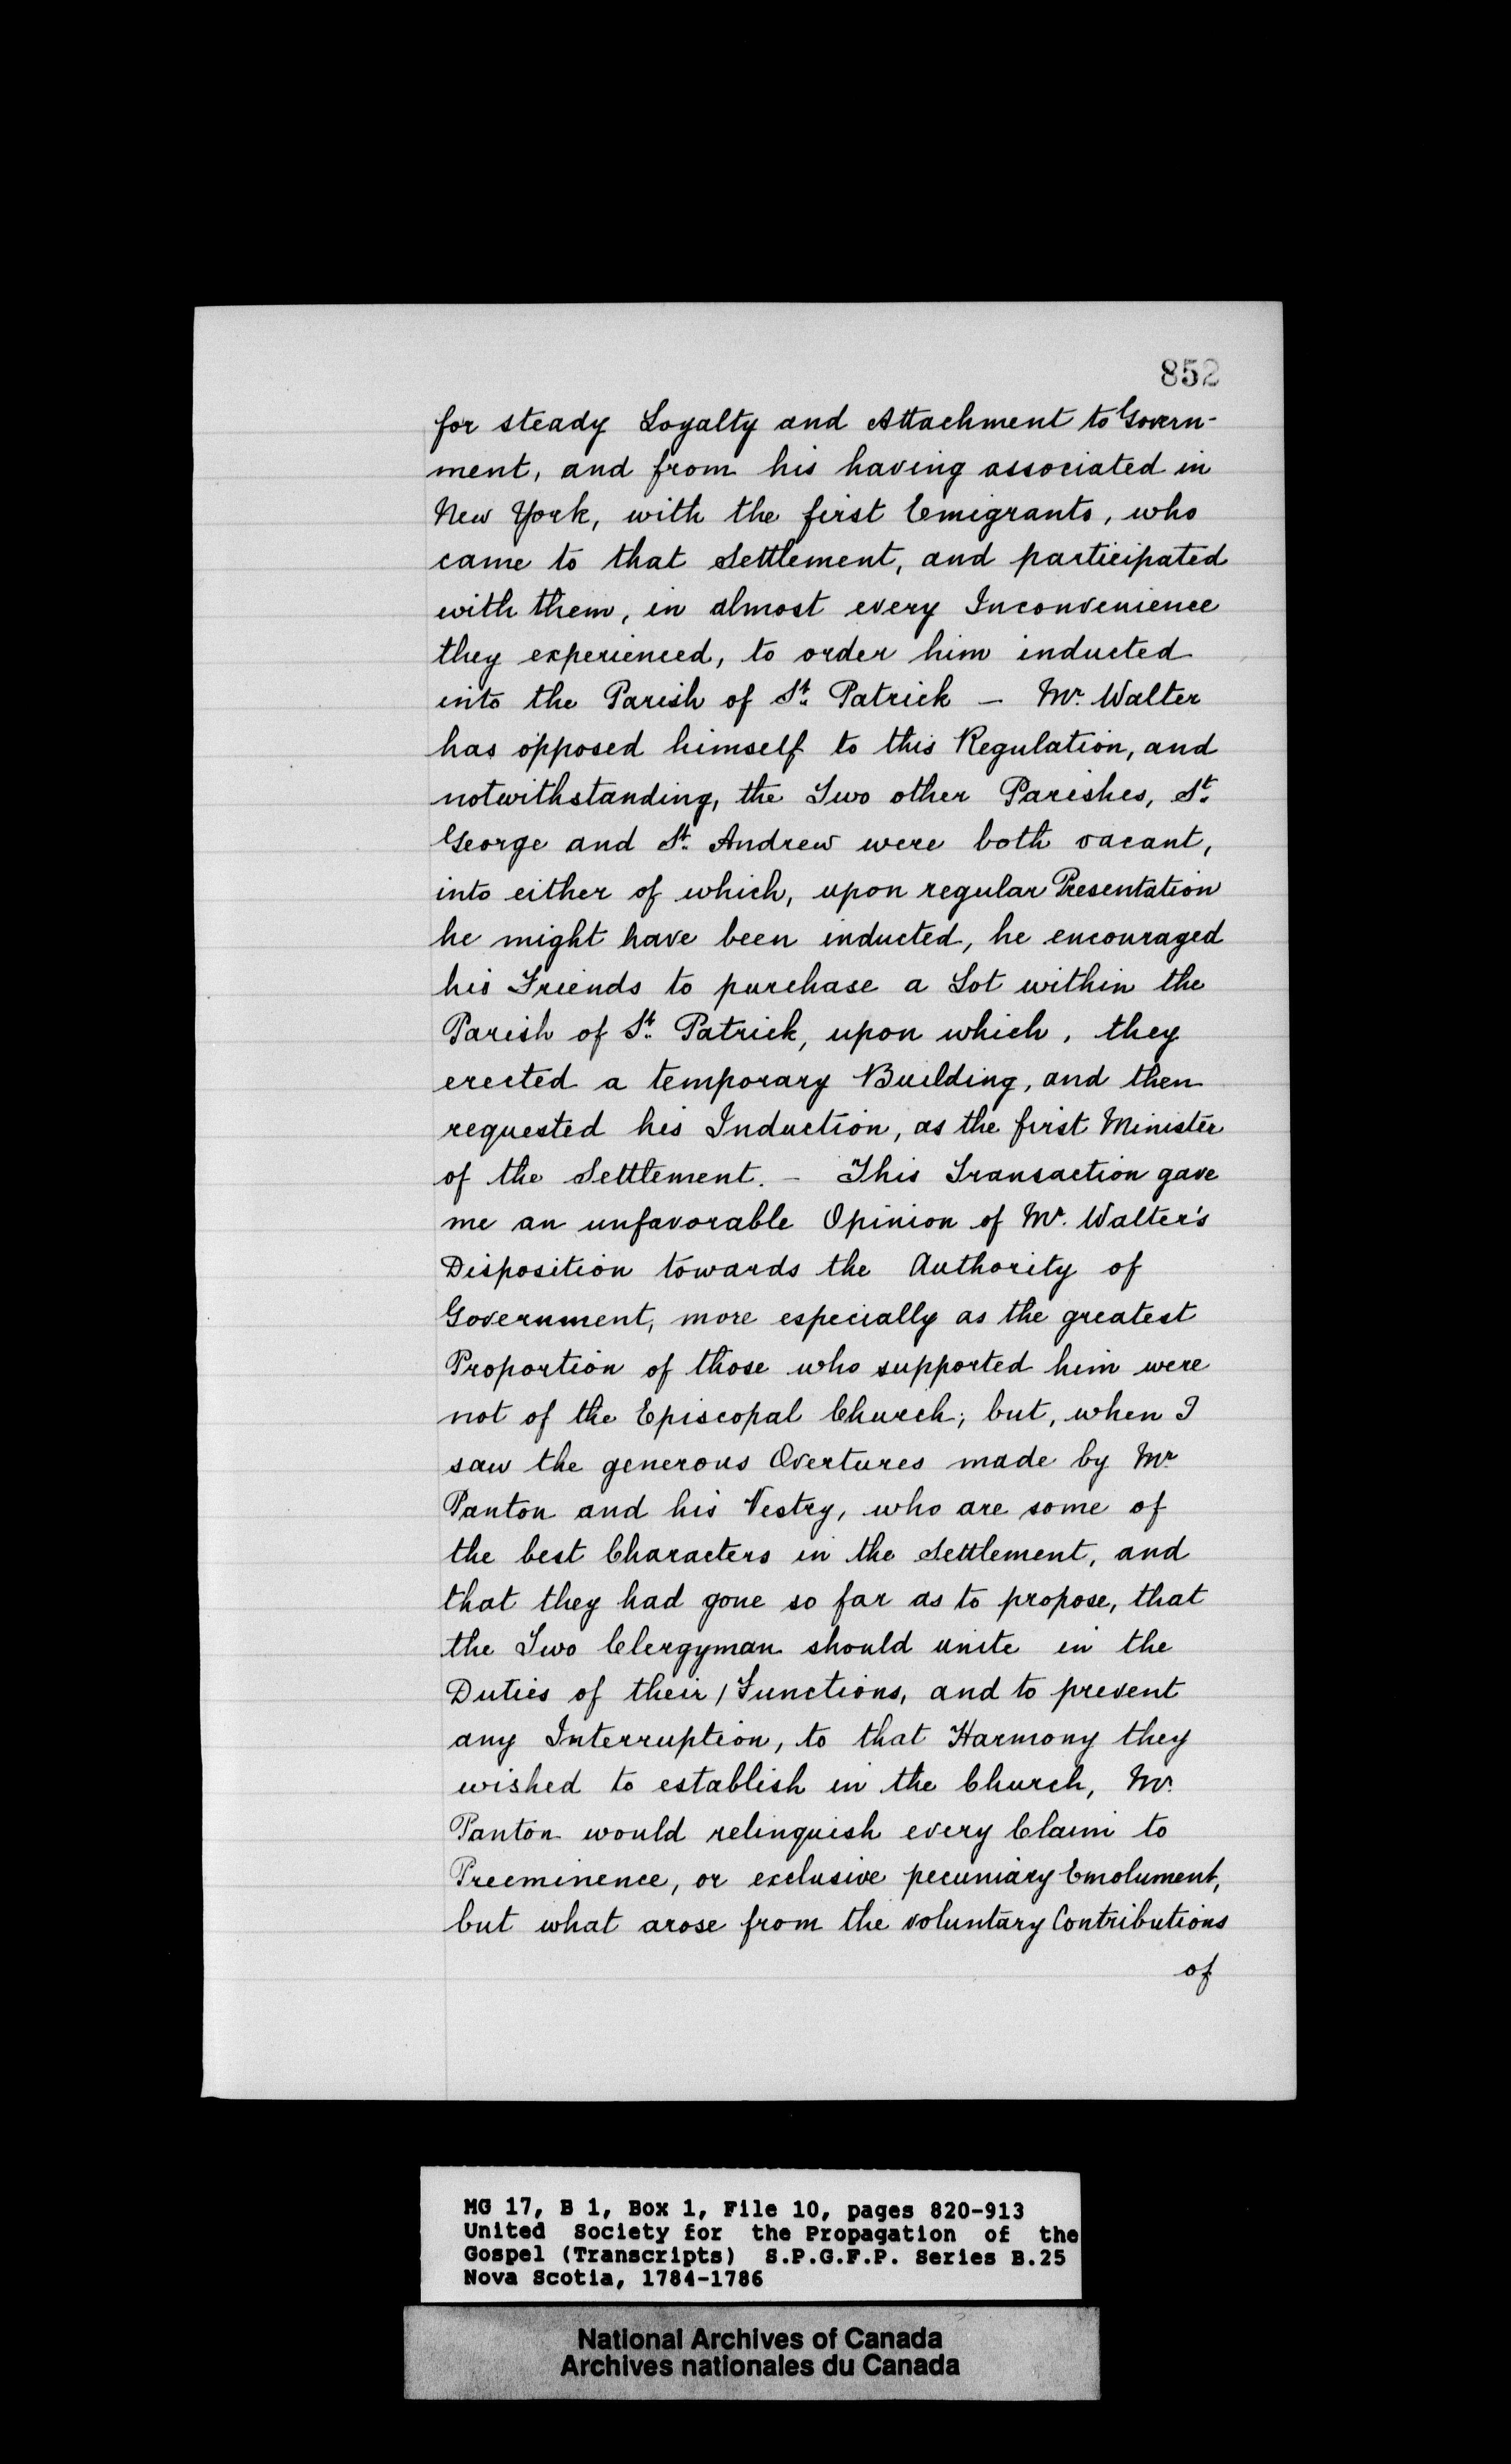 852
for steady Loyalty and Attachment to Govern-
ment, and from his having associated in
New York, with the first Emigrants, who
came to that Settlement, and participated
with them, in almost every Inconvenience
they experienced, to order him inducted
into the Parish of St. Patrick — Mr. Walter
has opposed himself to this Regulation, and
notwithstanding, the Two other Parishes, St.
George and St. Andrew were both vacant,
into either of which, upon regular Presentation
he might have been inducted, he encouraged
his Friends to purchase a Lot within the
Parish of St. Patrick, upon which, they
erected a temporary Building, and then
requested his Induction, as the first Minister
of the Settlement. — This Transaction gave
me an unfavorable Opinion of Mr. Walter's
Disposition towards the Authority of
Government, more especially as the greatest
Proportion of those who supported him were
not of the Episcopal Church; but, when I
saw the generous Overtures made by Mr
Panton and his Vestry, who are some of
the best Characters in the Settlement, and
that they had gone so far as to propose, that
the Two Clergyman should unite in the
Duties of their / Functions, and to prevent
any Interruption, to that Harmony they
wished to establish in the Church, Mr.
Panton would relinquish every Claim to
Preeminence, or exclusive pecuniary Emolument,
but what arose from the voluntary Contributions
of
MG 17, B 1, Box 1, File 10, pages 820-913
United Society for the Propagation of the
Gospel (Transcripts) S.P.G.F.P. Series B.25
Nova Scotia, 1784-1786
National Archives of Canada
Archives nationales du Canada